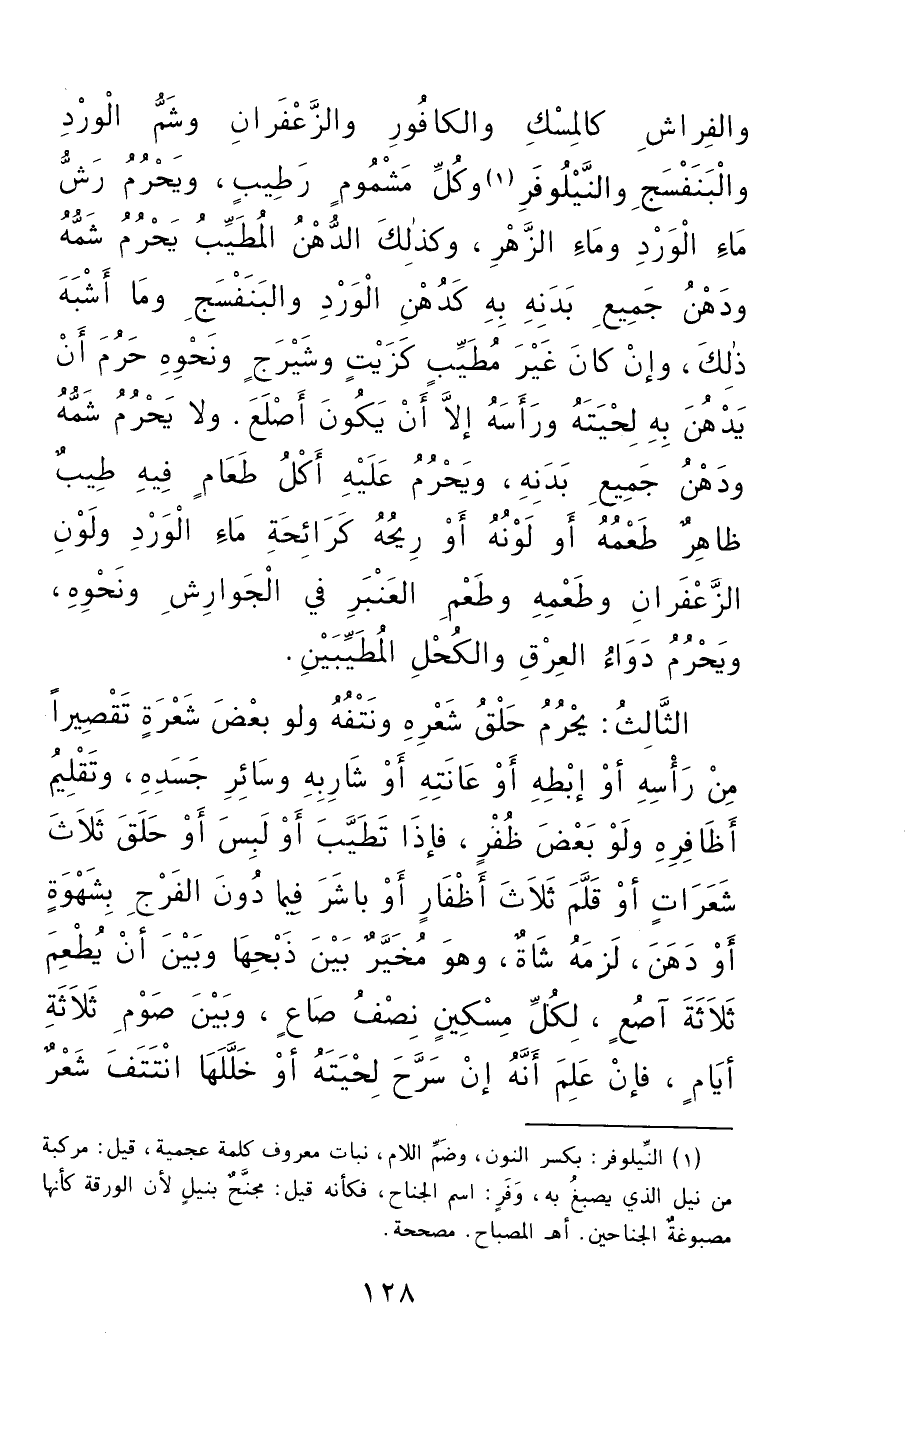 والفِراشِ كالمِسْكِ والكافُورِ والزَّعْفَرانِ وشَمُّ الْورْدِ
والْبَنَفْسَجِ والنَّيْلُوفَرِ (١) وكُلِّ مَشْمُومٍ رَطِيبٍ، ويَحْرُمُ رَشُّ
مَاءِ الْوَرْدِ ومَاءِ الزَّهْرِ، وكذٰلِكَ الدُّهْنُ المُطَيِّبُ يَحْرُمُ شَمُّهُ
ودَهْنُ جَمِيعِ بَدَنِهِ بِهِ كَدُهْنِ الْوَرْدِ والبَنَفْسَجِ ومَا أَشْبَهَ
ذٰلِكَ، وإنْ كانَ غَيْرَ مُطَيِّبٍ كَزَيْتٍ وشَيْرَجٍ ونَحْوِهِ حَرُمَ أَنْ
يَدْهُنَ بِهِ لِحْيَتَهُ ورَأسَهُ إلاَّ أَنْ يَكُونَ أَصْلَعَ. ولا يَحْرُمُ شَمُّهُ
ودَهْنُ جَمِيعِ بَدَنِهِ، ويَحْرُمُ عَلَيْهِ أَكْلُ طَعَامٍ فِيهِ طِيبٌ
ظاهِرٌ طَعْمُهُ أَو لَوْنُهُ أَوْ رِيحُهُ كَرَائِحَةِ مَاءِ الْوَرْدِ ولَوْنِ
الزَّعْفَرانِ وطَعْمِهِ وطَعْمِ العَنْبَرِ في الْجَوارِشِ ونَحْوِهِ،
ويَحْرُمُ دَوَاءُ العِرْقِ والكُحْلِ المُطَيِّبَيْنِ.
الثَّالِثُ: يَحْرُمُ حَلْقُ شَعْرِهِ ونَتْفُهُ ولو بعْضَ شَعْرَةٍ تَقْصِيراً
مِنْ رَأْسِهِ أوْ إبْطِهِ أَوْ عَانَتِهِ أَوْ شَارِبِهِ وسَائِرِ جَسَدِهِ، وتَقْلِيمُ
أظَافِرِهِ ولَوْ بَعْضَ ظُفْرٍ، فإذَا تَطَيَّبَ أَوْ لَبِسَ أَوْ حَلَقَ ثَلاثَ
شَعَرَاتٍ أوْ قَلَّمَ ثَلاثَ أَظْفارٍ أَوْ باشَرَ فِيما دُونَ الفَرْجِ بِشَهْوَةٍ
أَوْ دَهَنَ، لَزِمَهُ شَاةٌ، وهوَ مُخَيَّرٌ بَيْنَ ذَبْحِهَا وبَيْنَ أنْ يُطْعِمَ
ثَلاَثَةَ آصُعٍ، لِكُلِّ مِسْكِينٍ نِصْفُ صَاعٍ، وبَيْنَ صَوْمِ ثَلاَثَةِ
أيَامٍ، فإنْ عَلِمَ أَنَّهُ إنْ سَرَّحَ لِحْيَتَهُ أوْ خَلَّلَهَا انْتَتَفَ شَعْرٌ
(١) النِّيلوفر: بكسر النون، وضَمِّ اللام، نبات معروف كلمة عجمية، قيل: مركبة
من نيل الذي يصبغُ به، وَفَرٍ: اسم الجناح، فكأنه قيل: مجنَّحٌ بنيلٍ لأن الورقة كأنها
مصبوغةٌ الجناحين. أهـ المصباح. مصححة.
١٢٨